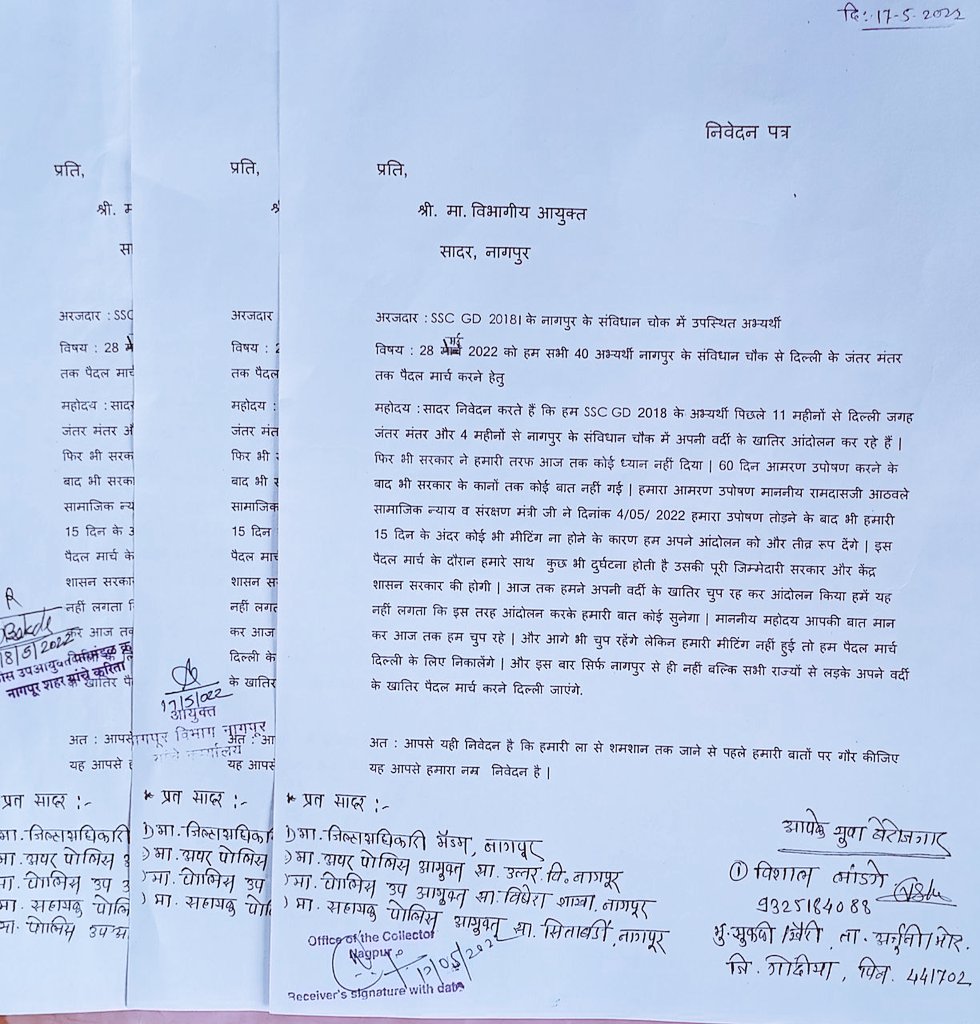 दि:-17-5-2022
निवेदन पत्र
प्रति,
श्री. मा. विभागीय आयुक्त
सादर, नागपुर
अरजदार : SSC GD 2018। के नागपुर के संविधान चोक में उपस्थित अभ्यर्थी
मई
विषय : 28 मार्च 2022 को हम सभी 40 अभ्यर्थी नागपुर के संविधान चोक से दिल्ली के जंतर मंतर
तक पैदल मार्च करने हेतु
महोदय : सादर निवेदन करते हैं कि हम SSC GD 2018 के अभ्यर्थी पिछले 11 महीनों से दिल्ली जगह
जंतर मंतर और 4 महीनों से नागपुर के संविधान चौक में अपनी वर्दी के खातिर आंदोलन कर रहे हैं |
फिर भी सरकार ने हमारी तरफ आज तक कोई ध्यान नहीं दिया | 60 दिन आमरण उपोषण करने के
बाद भी सरकार के कानों तक कोई बात नहीं गई | हमारा आमरण उपोषण माननीय रामदासजी आठवले
सामाजिक न्याय व संरक्षण मंत्री जी ने दिनांक 4/05/ 2022 हमारा उपोषण तोड़ने के बाद भी हमारी
15 दिन के अंदर कोई भी मीटिंग ना होने के कारण हम अपने आंदोलन को और तीव्र रूप देंगे | इस
पैदल मार्च के दौरान हमारे साथ कुछ भी दुर्घटना होती है उसकी पूरी जिम्मेदारी सरकार और केंद्र
शासन सरकार की होगी | आज तक हमने अपनी वर्दी के खातिर चुप रह कर आंदोलन किया हमें यह
नहीं लगता कि इस तरह आंदोलन करके हमारी बात कोई सुनेगा | माननीय महोदय आपकी बात मान
कर आज तक हम चुप रहे | और आगे भी चुप रहेंगे लेकिन हमारी मीटिंग नहीं हुई तो हम पैदल मार्च
दिल्ली के लिए निकालेंगे | और इस बार सिर्फ नागपुर से ही नहीं बल्कि सभी राज्यों से लड़के अपने वर्दी
के खातिर पैदल मार्च करने दिल्ली जाएंगे.
अत : आपसे यही निवेदन है कि हमारी ला से शमशान तक जाने से पहले हमारी बातों पर गौर कीजिए
यह आपसे हमारा नम्र निवेदन है |
* प्रत सादर :-
1) मा. जिल्हाधिकारी मॅडम, नागपूर
) मा. अपर पोलिस आयुक्त सा. उत्तर वि. नागपूर
) मा. पोलिस उप आयुक्त सा विशेष शाखा, नागपूर
) मा. सहायक पोलिस आयुक्त सा. सिताबर्डी, नागपूर
Office of the Collector
Nagpur
17/05/2022
Receiver's signature with date
आपके युवा बेरोजगार
① विशाल लांडगे
9325184088
जि. गोंदीया, पिन. 441702
प्रति,
अरजदार
विषय : 2
तक पैदल
महोदय :
जंतर मंत
फिर भी
बाद भी
सामाजिक
15 दिन
पैदल मा
शासन
नहीं लगत
कर आज
दिल्ली के
के खातिर
17/5/2022
आयुक्त
नागपूर विभाग नागपूर
यह आपसे
* प्रत सादर :-
1) मा. जिल्हाधिकारी
) मा. अपर पोलिस
) मा. पोलिस उप
) मा. सहायक पोलि
प्रति,
श्री. म
सा
अरजदार : SSC
विषय : 28
तक पैदल मार्च
महोदय : सादर
जंतर मंतर औ
फिर भी सरक
बाद भी सरका
सामाजिक न्य
15 दिन के अ
पैदल मार्च के
शासन सरकार
नहीं लगता
कर आज तक
18/5/2022
नागपूर शहर यांचे करिता
अत : आपसे
यह आपसे ह
प्रत सादर :-
मा. जिल्हाधिकारी
मा. अपर पोलिस
मा. पोलिस उप
मा. सहायक पोलि